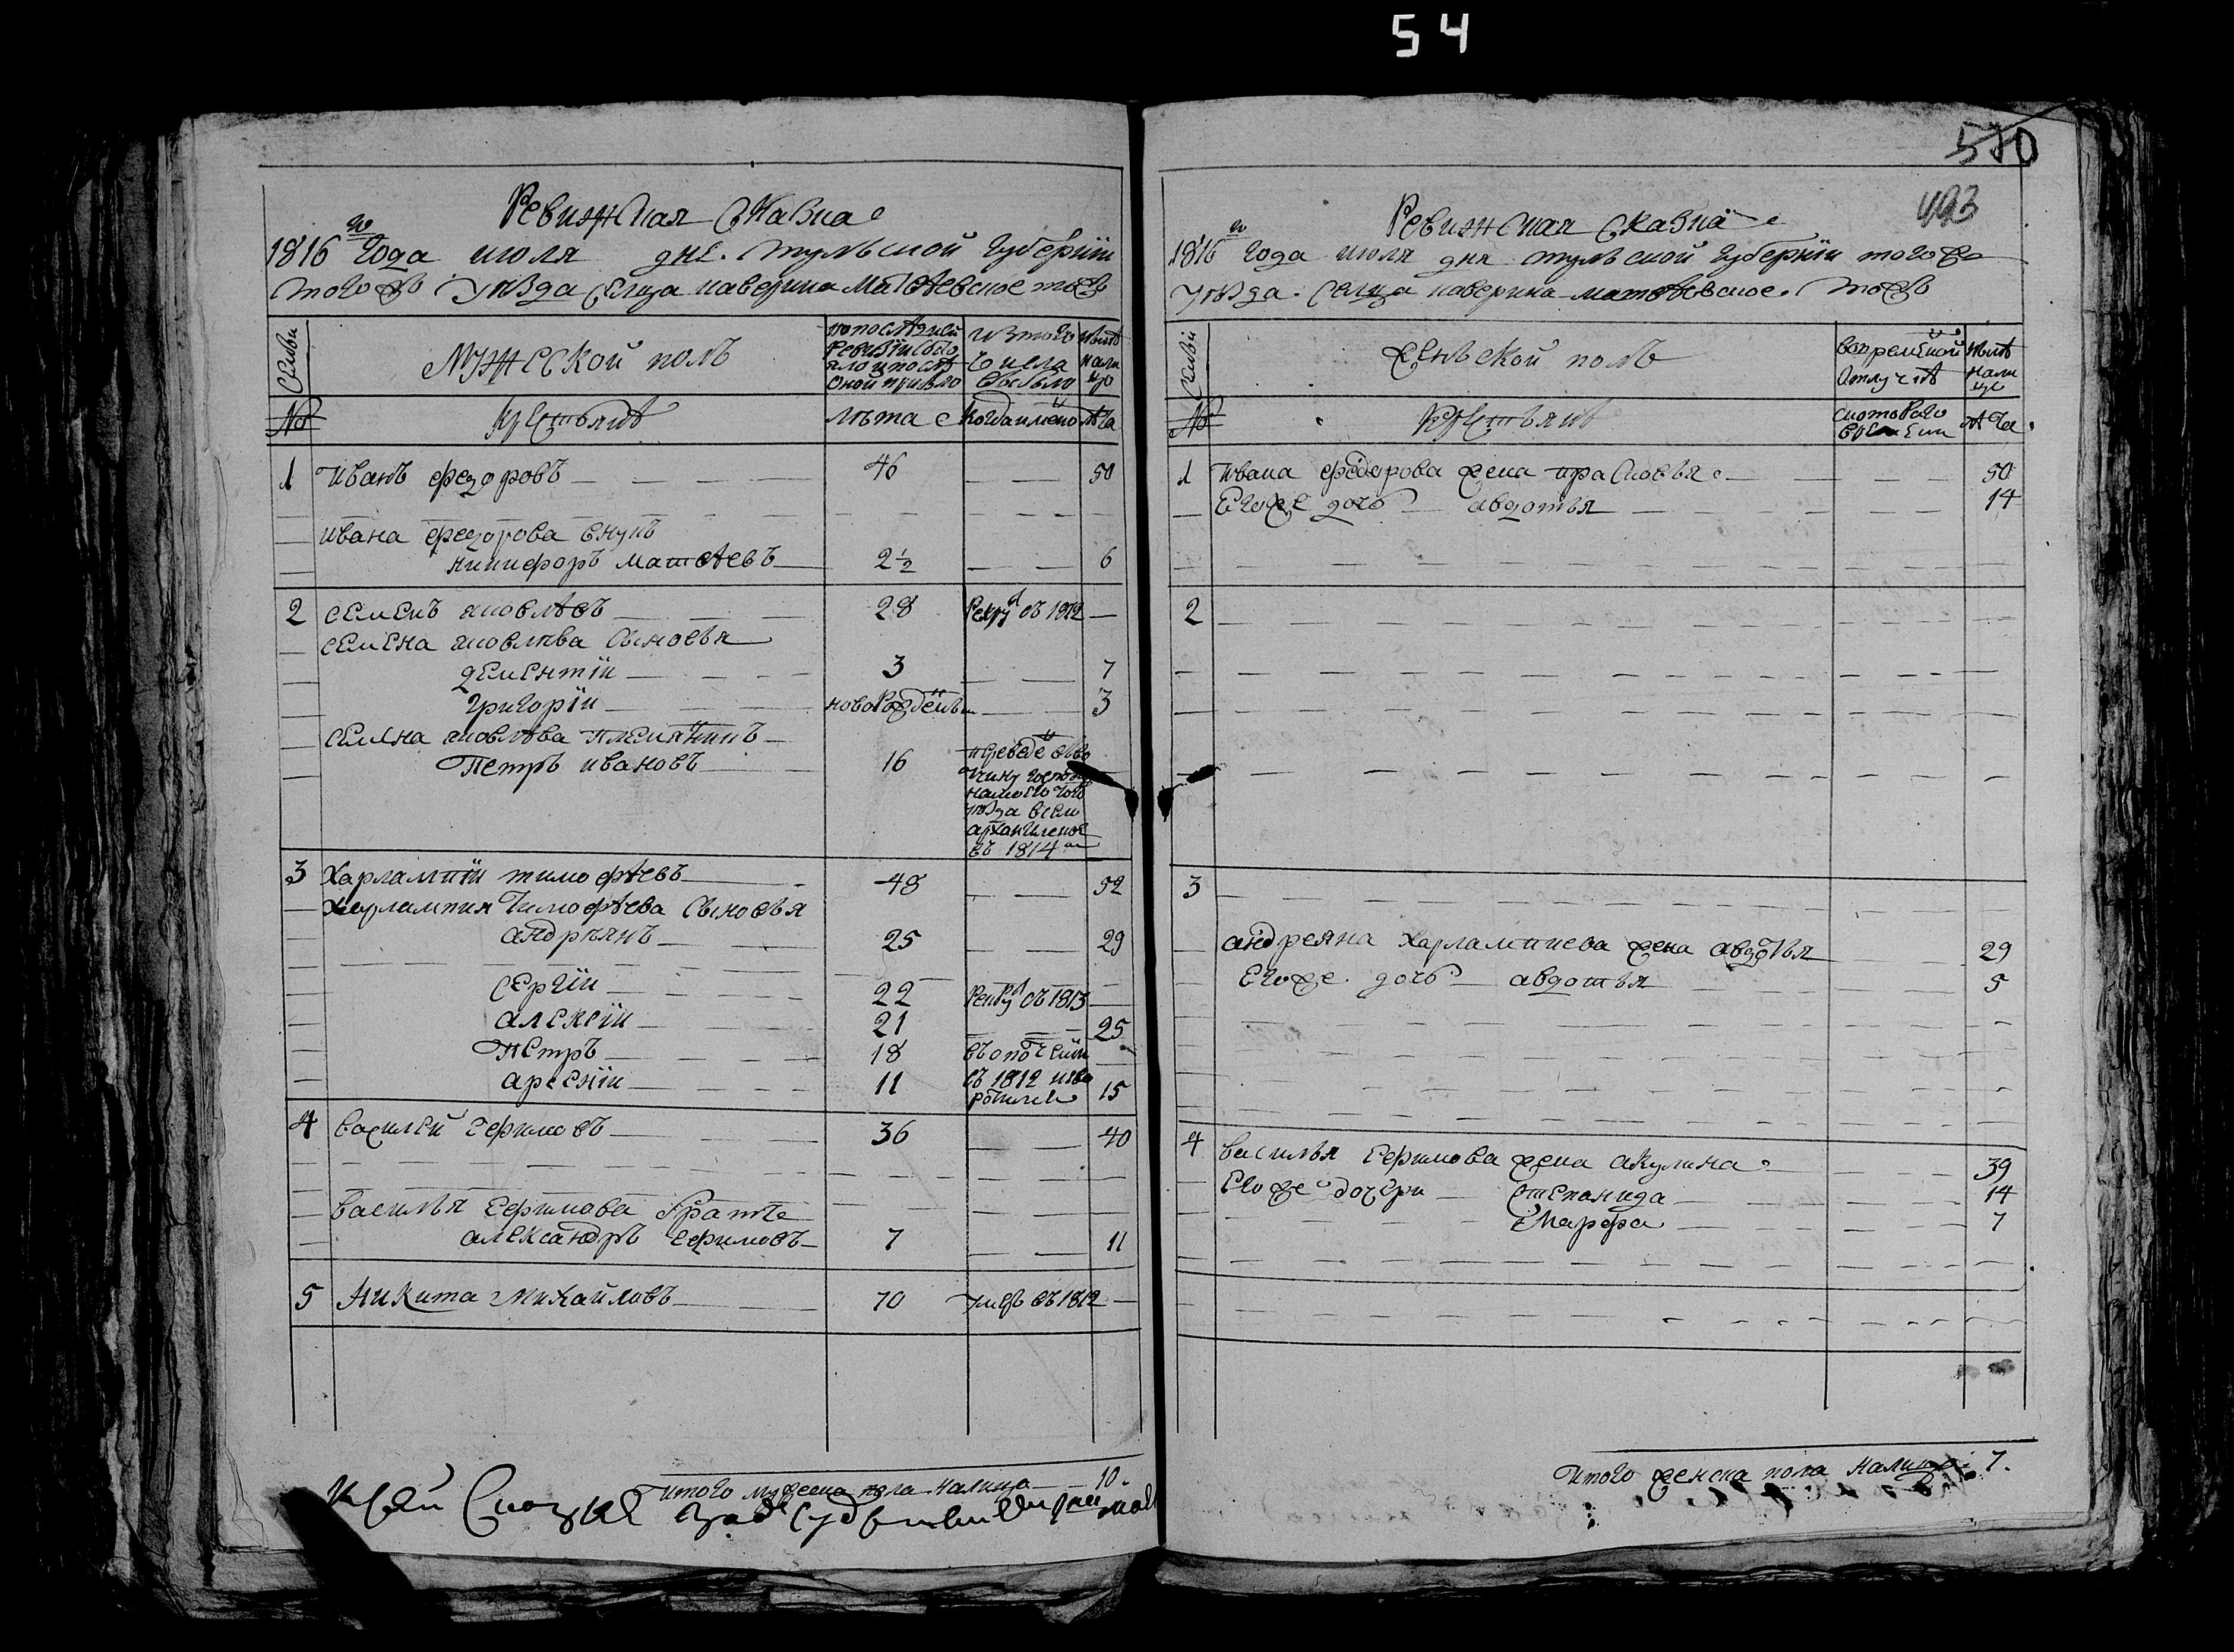 54
Ревижская скаска
1816го года июля дня Тульской губернии
тогожъ уѣзда селца Каверина Матѳевское тожъ
Семьи
Мужеской полъ
По последней ревизіи состояло и послѣ оной прибыло
Изъ того числа выбыло
Нынѣ на лицо
№
Крестьянѣ
Лѣта
Когда имено
Лѣта
1 Иванъ Федоровъ 46 50
Ивана Федорова внукъ
Никифоръ Матѳѣевъ 2½ 6
2 Семенъ Яковлѣвъ 28 Рекрут въ 1812
Семена Яковлѣва сыновья
Дементіи 3 7
Григоріи новорожденъ 3
Семена Яковлѣва племянникъ
Петръ Ивановъ 16 переведен въ вотчину
въ селе
Архангилское
въ 1814м
3 Харлампіи Тимофѣевъ 48 52
Харлампия Тимофѣева сыновья
Андрѣянъ 25 29
Сергіи 22 Рекрут въ 1813
Алексіи 21 25
Петръ 18 въ ополчении
Арсеніи 11 въ 1812 15
4 Василей Ефимовъ 36 40
Василья Ефимова братъ
Александръ Ефимовъ 7 11
5 Никита Михайловъ 70 умеръ въ 1812
Итого мужеска пола налицо 10.
К сей скаске
510
493
Ревижская скаска
1816го года июля дня Тульской губерніи тогожъ
уѣзда селца Каверина Матѳевское тожъ
Семьи
Женской полъ
Во временной отлучкѣ
Нынѣ на лицо
№
Крестьянѣ
С котораго времени
Лѣта
1 Ивана Федорова жена Прасковья 50
Егоже дочь Авдотья 14
2
3
Андреяна Харлампиева жена Авдотья 29
Егоже дочь Авдотья 5
4 Василья Ефимова жена Акулина 39
Егоже дочери Степанида 14
Марфа 7
Итого женска пола налицо 7.